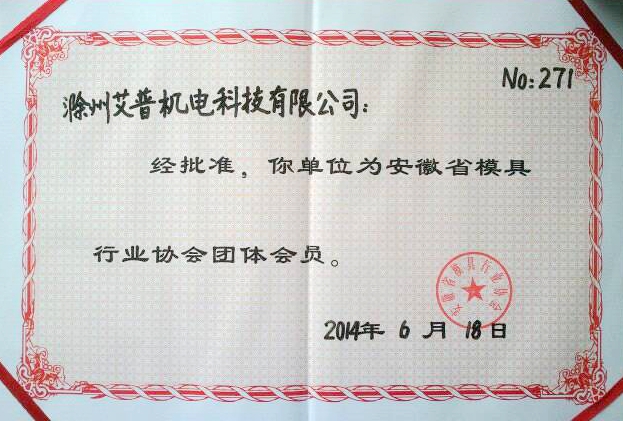 No:271
滁州艾普机电科技有限公司：
经批准，你单位为安徽省模具
行业协会团体会员。
安徽省模具行业协会
2014年 6 月 18 日